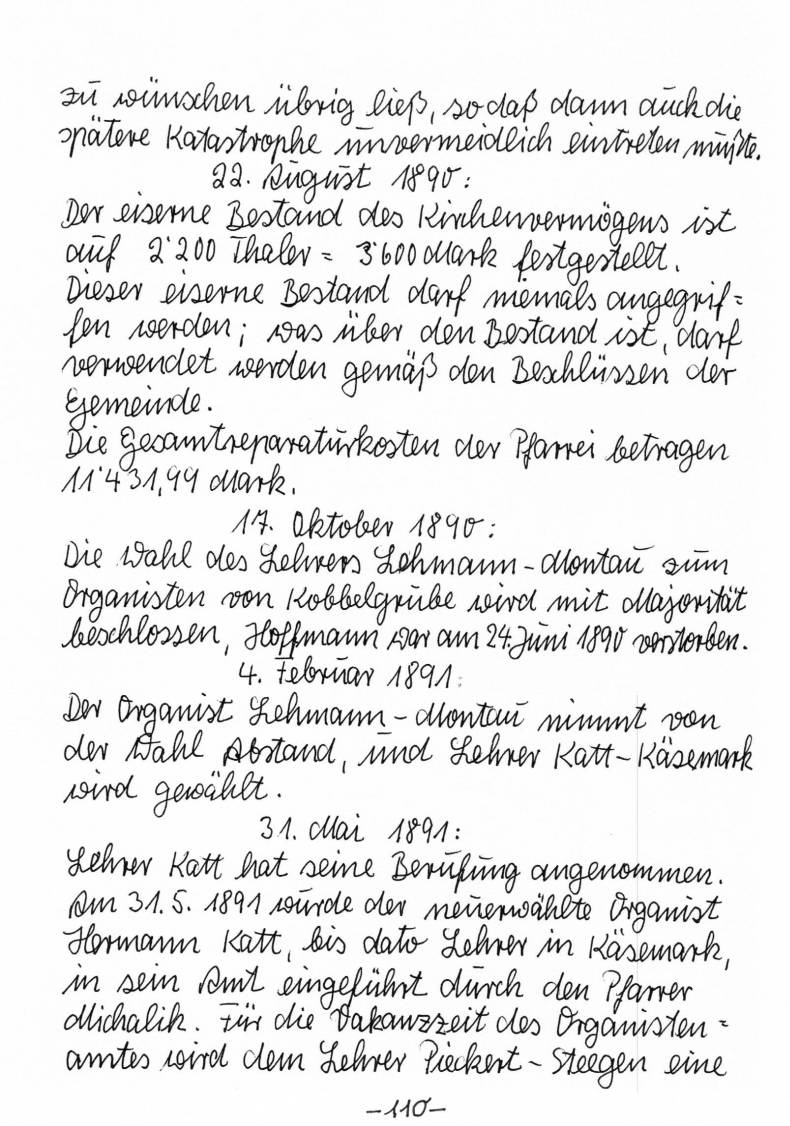 zu wünschen übrig ließ, so daß dann auch die
spätere Katastrophe unvermeidlich eintreten mußte.
22. August 1890:
Der eiserne Bestand des Kirchenvermögens ist
auf 2'200 Thaler = 3'600 Mark festgestellt.
Dieser eiserne Bestand darf niemals angegrif=
fen werden; was über den Bestand ist, darf
verwendet werden gemäß den Beschlüssen der
Gemeinde.
Die Gesamtreparaturkosten der Pfarrei betragen
11'431,99 Mark.
17. Oktober 1890:
Die Wahl des Lehrers Lehmann-Montau zum
Organisten von Kobbelgrube wird mit Majorität
beschlossen, Hoffmann war am 24. Juni 1890 verstorben.
4. Februar 1891:
Der Organist Lehmann-Montau nimmt von
der Wahl Abstand, und Lehrer Katt-Käsemark
wird gewählt.
31. Mai 1891:
Lehrer Katt hat seine Berufung angenommen.
Am 31.5.1891 wurde der neuerwählte Organist
Hermann Katt, bis dato Lehrer in Käsemark,
in sein Amt eingeführt durch den Pfarrer
Michalik. Für die Vakanzzeit des Organisten=
amtes wird dem Lehrer Pieckert-Steegen eine
-110-